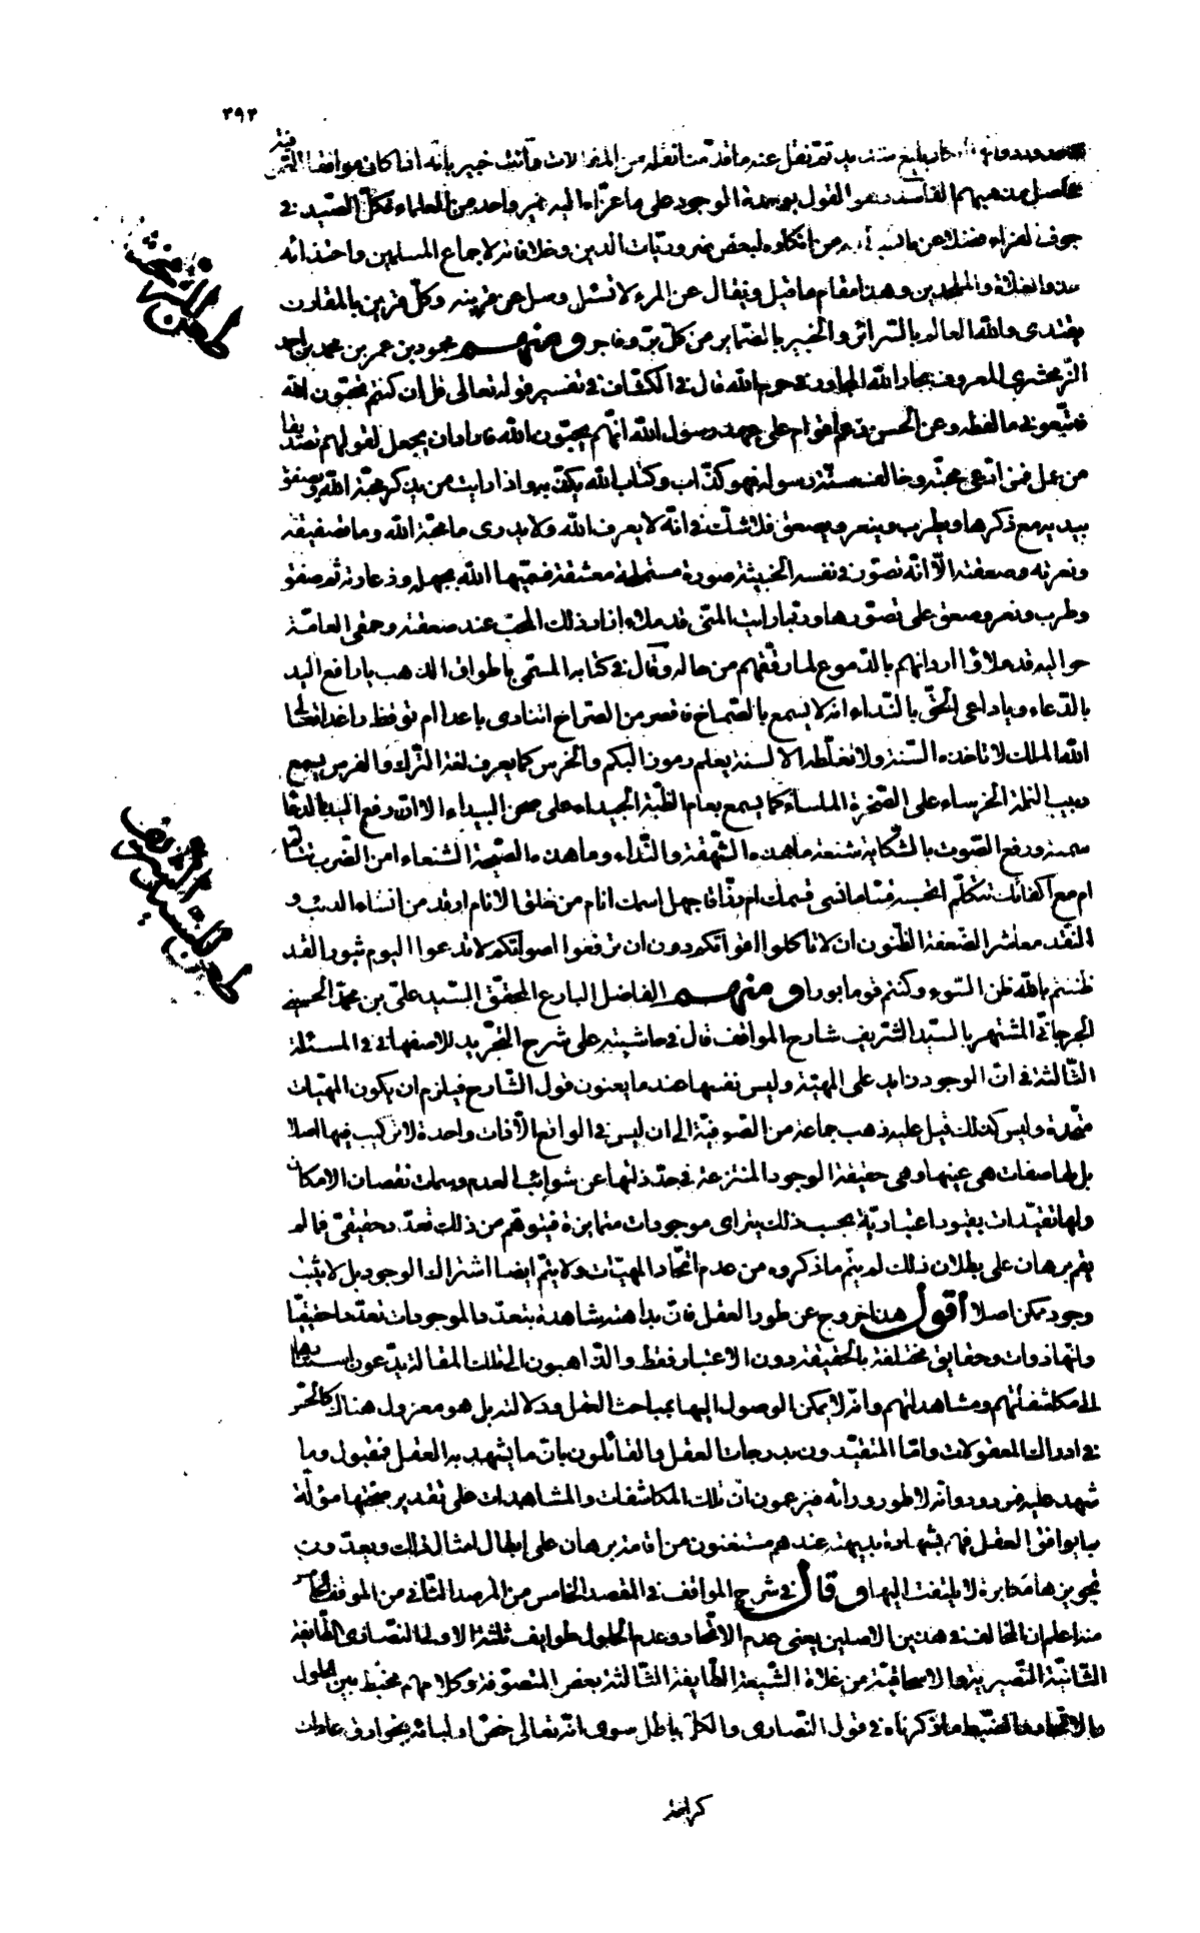 ٣٩٢
فيه
بليغ تم نقل عنه ما قدمنا نقله من المقالات فأنت خبير بأنه اذا كان موافقا
في اصل مذهبهم الفاسد وهو القول بوحدة الوجود على ما عزاه اليه غير واحد من العلماء فكل الصيد في
جوف الفراء فضلا عن ما نسب اليه من انكاره لبعض ضروريات الدين وخلافاته لاجماع المسلمين واحتذائه
حذو الغلاة والملحدين وهذا مقام ما قيل ويقال عن المرء لا تسئل وسل عن قرينه وكل قرين بالمقارن
يقتدى والله العالم بالسرائر والخبير بالضماير من كل بر وفاجر ومنهم محمود بن عمر بن محمد بن احمد
الزمخشري المعروف بجار الله المجاور في حرم الله قال في الكشاف في تفسير قوله تعالى قل ان كنتم تحبون الله
فاتبعوني ما لفظه وعن الحسن زعم اقوام على عهد رسول الله انهم يحبون الله فاراد ان يجعل لقولهم تصديقا
من عمل فمن ادعى محبته وخالف سنة رسوله فهو كذاب وكتاب الله يكذبه واذا رايت من يذكر محبة الله ويصفق
بيديه مع ذكرها ويطرب وينعر ويصعق فلا تشك في انه لا يعرف الله ولا يدرى ما محبة الله وما تصفيقه
ونعرته وصعقته الا انه تصور في نفسه الخبيثة صورة مستملحة معشقة فسميها الله بجهله ودعارته ثم صفق
وطرب ونعر وصعق على تصورها وربما رايت المنى قد ملاء ازار ذلك المحب عند صعقته وحمقى العامة
حواليه قد ملاؤا اردانهم بالدموع لما رققهم من حاله وقال في كتابه المسمى باطواق الذهب يا رافع اليد
بالدعاء ويا داعى الحق بالنداء انه لا يسمع بالصماخ فاقصر من الصراخ اتنادى باعدا ام توقظ راقدا تعالى
الله الملك لا تاخذه السنة ولا تغلطه الالسنة يعلم رموز البكم والخرس كما يعرف لغة الترك والفرس يسمع
دبيب النملة الخرساء على الصخرة الملساء كما يسمع بغام الظبية الجيداء على صحن البيداء الا ان رفع اليد بالدعاء
سمعة ورفع الصوت بالشكاية شنعة ما هذه الشهقة والنداء وما هذه الصيحة الشنعاء امن الضرب تتالم
ام مع اكفائك تتكلم
النقد معاشر الضعفة الظنون ان لا تاكلوا اقواتكم دون ان ترفعوا اصواتكم لا تدعوا اليوم ثبورا لقد
ظننتم بالله ظن السوء وكنتم قوما بورا ومنهم الفاضل البارع المحقق السيد علي بن محمد الحسيني
الجرجاني المشتهر بالسيد الشريف شارح المواقف قال في حاشيته على شرح التجريد للاصفهاني في المسئلة
الثالثة في ان الوجود زايد على المهية وليس نفسها عند ما يعنون قول الشارح فيلزم ان يكون المهيات
متحدة وليس كذلك قيل عليه ذهب جماعة من الصوفية الى ان ليس في الواقع الا ذات واحدة لا تركيب فيها اصلا
بل لها صفات هي عينها وهي حقيقة الوجود المنتزعة في حد ذاتها عن شوائب العدم وسمات نقصان الامكان
ولها تقيدات بقيود اعتبارية بحسب ذلك يتراى موجودات متمايزة فيتوهم من ذلك تعدد حقيقي فما لم
يقم برهان على بطلان ذلك لم يتم ما ذكروه من عدم اتحاد المهيات ولا يتم ايضا اشتراك الوجود بل لا يثبت
وجود ممكن اصلا أقول هذا خروج عن طور العقل فان بداهته شاهدة بتعدد الموجودات تعددا حقيقيا
وانها ذوات وحقايق مختلفة بالحقيقة دون الاعتبار فقط والذاهبون الى تلك المقالة يدعون استنادها
الى مكاشفاتهم ومشاهداتهم وانه لا يمكن الوصول اليها بمباحث العقل ودلالته بل هو معزول هناك كالحس
في ادراك المعقولات واما المتقيدون بدرجات العقل والقائلون بان ما يشهد به العقل فمقبول وما
شهد عليه فمردود وانه لا طور ورائه فيزعمون ان تلك المكاشفات والمشاهدات على تقدير صحتها مؤلة
بما يوافق العقل فهم بشهادة بديهته عندهم مستغنون من اقامة برهان على ابطال امثال ذلك ويعدون
تجويزها مكابرة لا يلتفت اليها وقال في شرح المواقف في المقصد الخامس من المرصد الثاني من الموقف الخامس
منه اعلم ان المخالف في هذين الاصلين يعنى عدم الاتحاد وعدم الحلول طوايف ثلثة الاولى النصارى الطايفة
الثانية النصيرية والاسحاقية من غلاة الشيعة الطايفة الثالثة بعض المتصوفة وكلامهم مخبط بين الحلول
والاتحاد والضبط ما ذكرناه في قول النصارى والكل باطل سوى انه تعالى خص اوليائه بخوارق عادات
كرامة
طعن الزمخشري
طعن السيد الشريف